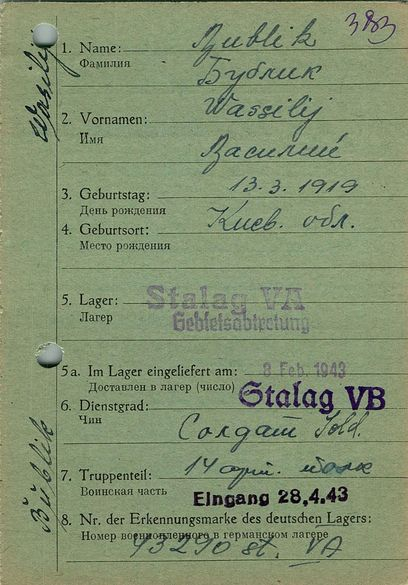 383
1. Name: Bublik
Фамилия Бублик
2. Vornamen: Wassilij
Имя Василий
3. Geburtstag: 13.3.1919
День рождения
4. Geburtsort: Киев. обл.
Место рождения
5. Lager: Stalag VA
Лагер Gebietsabtretung
5a. Im Lager eingeliefert am: 8 Feb. 1943
Доставлен в лагер (число)
Stalag VB
6. Dienstgrad:
Чин Солдат Sold.
7. Truppenteil: 14 арт. полк
Воинская часть
Eingang 28.4.43
8. Nr. der Erkennungsmarke des deutschen Lagers:
Номер военнопленного в германском лагере
43290 St. VA
Wassilij
Bublik